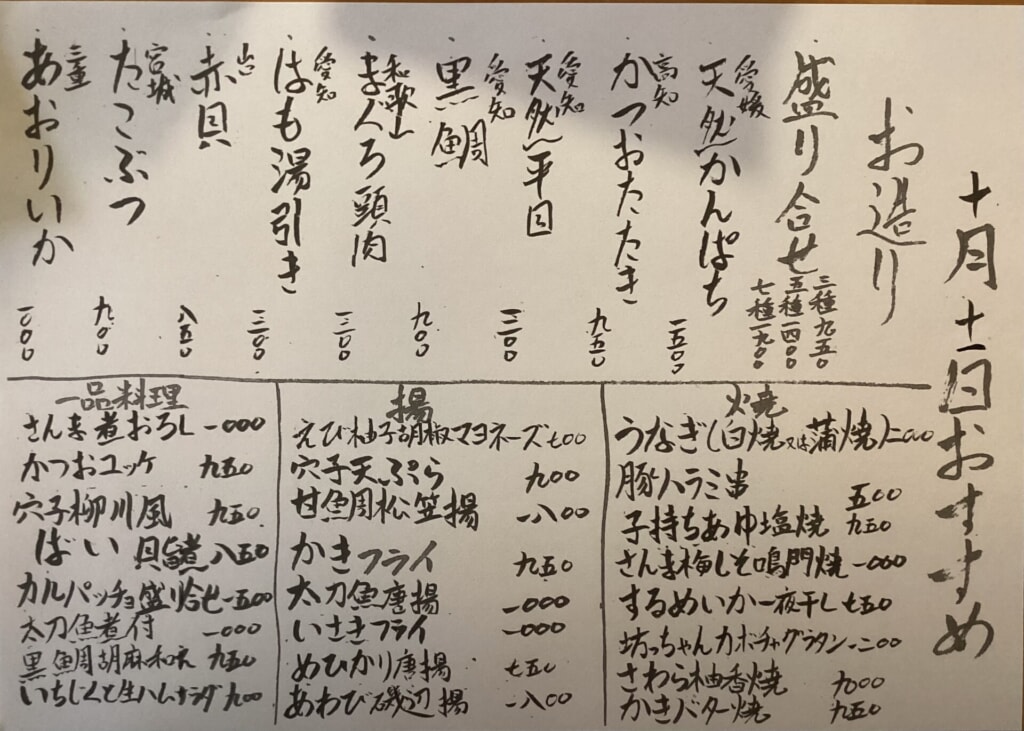 十月十一日おすすめ
お造り
盛り合せ
三種九五〇
五種一四〇〇
七種一九〇〇
愛媛
天然かんぱち
一五〇〇
高知
かつおたたき
九五〇
愛知
天然平目
一二〇〇
愛知
黒鯛
九〇〇
和歌山
まぐろ頭肉
一二〇〇
愛知
はも湯引き
一二〇〇
山口
赤貝
八五〇
宮城
たこぶつ
九〇〇
三重
あおりいか
一〇〇〇
焼
うなぎ(白焼又は蒲焼)二〇〇〇
豚ハラミ串 五〇〇
子持ちあゆ塩焼 九五〇
さんま梅しそ鳴門焼 一〇〇〇
するめいか一夜干し 七五〇
坊っちゃんカボチャグラタン 一二〇〇
さわら柚香焼
かきバター焼 九五〇
揚
えび柚子胡椒マヨネーズ 七〇〇
穴子天ぷら 九〇〇
甘鯛松笠揚 一八〇〇
かきフライ 九五〇
太刀魚唐揚 一〇〇〇
いさきフライ 一〇〇〇
めひかり唐揚 七五〇
あわび磯辺揚 一八〇〇
一品料理
さんま煮おろし 一〇〇〇
かつおユッケ 九五〇
穴子柳川風 九五〇
ばい貝旨煮 八五〇
カルパッチョ盛り合せ 一五〇〇
太刀魚煮付 一〇〇〇
黒鯛胡麻和え 九五〇
いちじくと生ハムサラダ 九〇〇